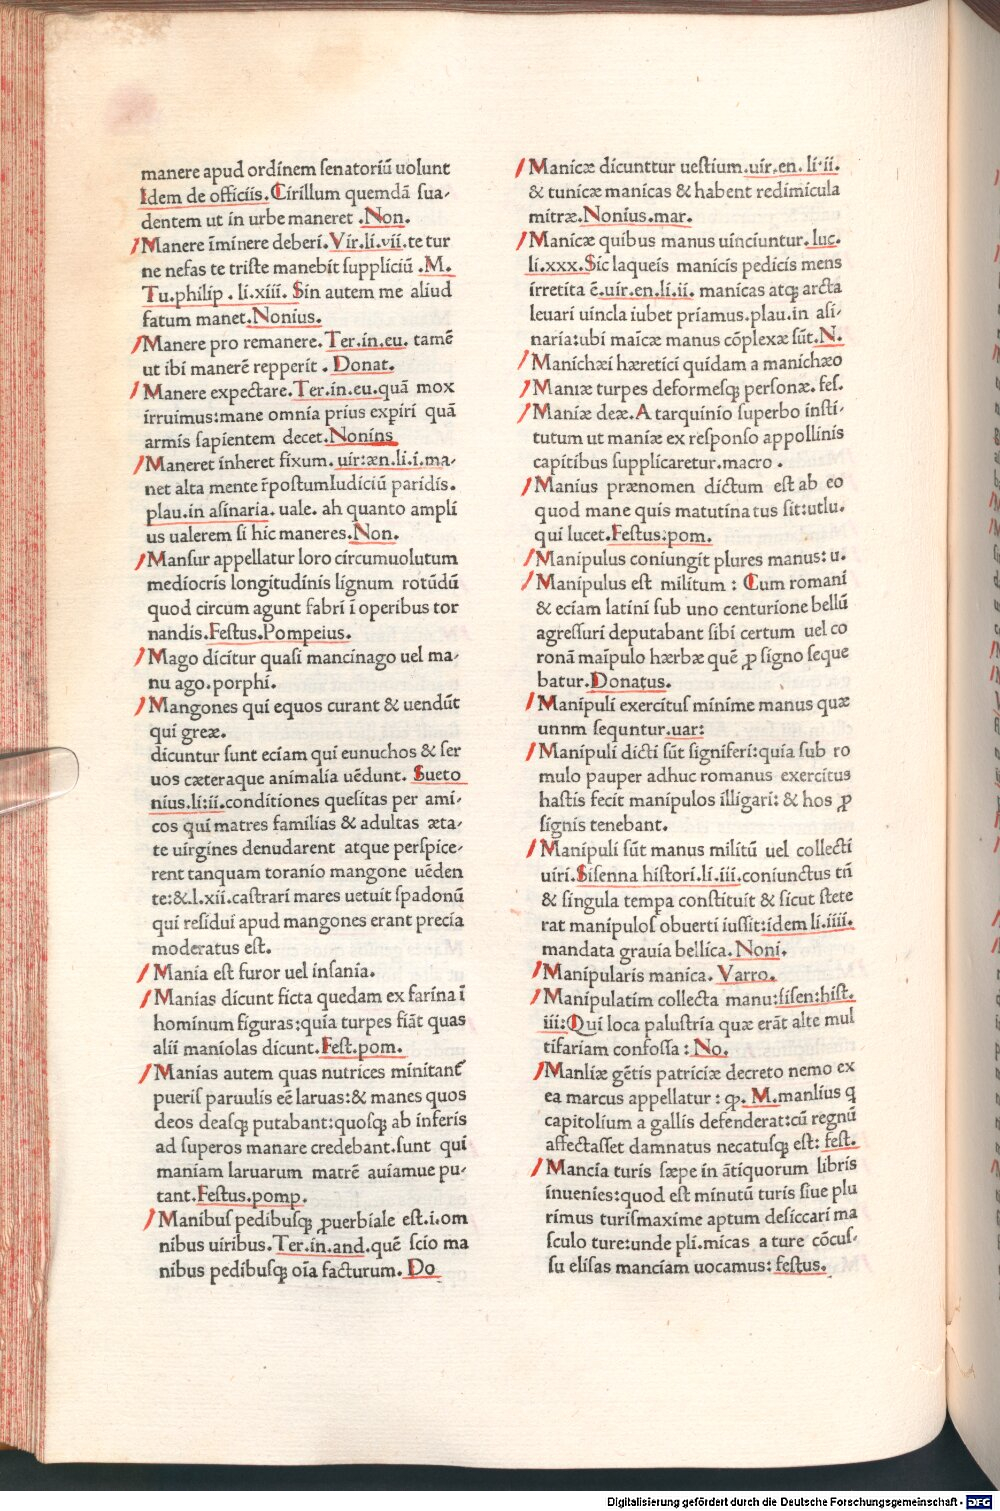 manere apud ordinem ſenatoriū uolunt
Idem de officiis. Cirillum quemdā ſua-
dentem ut in urbe maneret .Non.
Manere īminere deberi. Vir.li.vii.te tur
ne nefas te triſte manebit ſuppliciū .M.
Tu.philip . li.xiii. Sin autem me aliud
fatum manet.Nonius.
Manere pro remanere. Ter.in.eu. tamē
ut ibi manerē repperit . Donat.
Manere expectare.Ter.in.eu.quā mox
irruimus:mane omnia prius expiri quā
armis ſapientem decet.Nonins
Maneret inheret fixum. uir:æn.li.i.ma-
net alta mente r̄poſtumIudiciū paridis.
plau.in aſinaria. uale. ah quanto ampli
us ualerem ſi hic maneres.Non.
Manſur appellatur loro circumuolutum
mediocris longitudinis lignum rotūdū
quod circum agunt fabri ī operibus tor
nandis.Feſtus.Pompeius.
Mago dicitur quaſi mancinago uel ma-
nu ago.porphi.
Mangones qui equos curant & uendūt
qui greæ.
dicuntur ſunt eciam qui eunuchos & ſer
uos cæteraque animalia uēdunt. Sueto
nius.li:ii.conditiones queſitas per ami-
cos qui matres familias & adultas æta-
te uirgines denudarent atque perſpice-
rent tanquam toranio mangone uēden
te:&.l.xii.caſtrari mares uetuit ſpadonū
qui reſidui apud mangones erant precia
moderatus eſt.
Mania eſt furor uel inſania.
Manias dicunt ficta quedam ex farina ī
hominum figuras:quia turpes fiāt quas
alii maniolas dicunt.Feſt.pom.
Manias autem quas nutrices minitant᷑
pueris paruulis eē laruas:& manes quos
deos deaſqꝫ putabant:quoſqꝫ ab inferis
ad ſuperos manare credebant.ſunt qui
maniam laruarum matrē auiamue pu-
tant.Feſtus.pomp.
Manibus pedibuſqꝫ ꝓuerbiale eſt.i.om
nibus uiribus.Ter.in.and.quē ſcio ma
nibus pedibuſqꝫ oīa facturum. Do
Manicæ dicunttur ueſtium.uir.en. li·ii.
& tunicæ manicas & habent redimicula
mitræ.Nonius.mar.
Manicæ quibus manus uinciuntur. luc.
li.xxx.Sic laqueis manicis pedicis mens
irretita ē.uir.en.li.ii. manicas atqꝫ arcta
leuari uincla iubet priamus.plau.in aſi-
naria:ubi maicæ manus cōplexæ ſūt.N.
Manichæi hæretici quidam a manichæo
Maniæ turpes deformeſqꝫ perſonæ. feſ.
Maniæ deæ.A tarquinio ſuperbo inſti-
tutum ut maniæ ex reſponſo appollinis
capitibus ſupplicaretur.macro .
Manius prænomen dictum eſt ab eo
quod mane quis matutina tus ſit:utlu.
qui lucet.Feſtus:pom.
Manipulus coniungit plures manus: u.
Manipulus eſt militum : Cum romani
& eciam latini ſub uno centurione bellū
agreſſuri deputabant ſibi certum uel co
ronā maīpulo hærbæ quē ꝓ ſigno ſeque
batur.Donatus.
Manipuli exercitus minime manus quæ
unnm ſequntur.uar:
Manipuli dicti ſūt ſigniferi:quia ſub ro
mulo pauper adhuc romanus exercitus
haſtis fecit manipulos illigari: & hos ꝓ
ſignis tenebant.
Manipuli ſūt manus militū uel collecti
uiri.Siſenna hiſtori.li.iii.coniunctus tū
& ſingula tempa conſtituit & ſicut ſtete
rat manipulos obuerti iuſſit:idem li.iiii.
mandata grauia bellica. Noni.
Manipularis manica. Varro.
Manipulatim collecta manu:ſiſen:hiſt.
iii:Qui loca paluſtria quæ erāt alte mul
tifariam confoſſa : No.
Manliæ gētis patriciæ decreto nemo ex
ea marcus appellatur : ꝙ. M.manlius q
capitolium a gallis defenderat:cū regnū
affectaſſet damnatus necatuſqꝫ eſt: feſt.
Mancia turis ſæpe in ātiquorum libris
inuenies:quod eſt minutū turis ſiue plu
rimus turiſmaxime aptum deſiccari ma
ſculo ture:unde pli.micas a ture cōcuſ-
ſu eliſas manciam uocamus: feſtus.
Digitalisierung gefördert durch die Deutsche Forschungsgemeinschaft - DFG